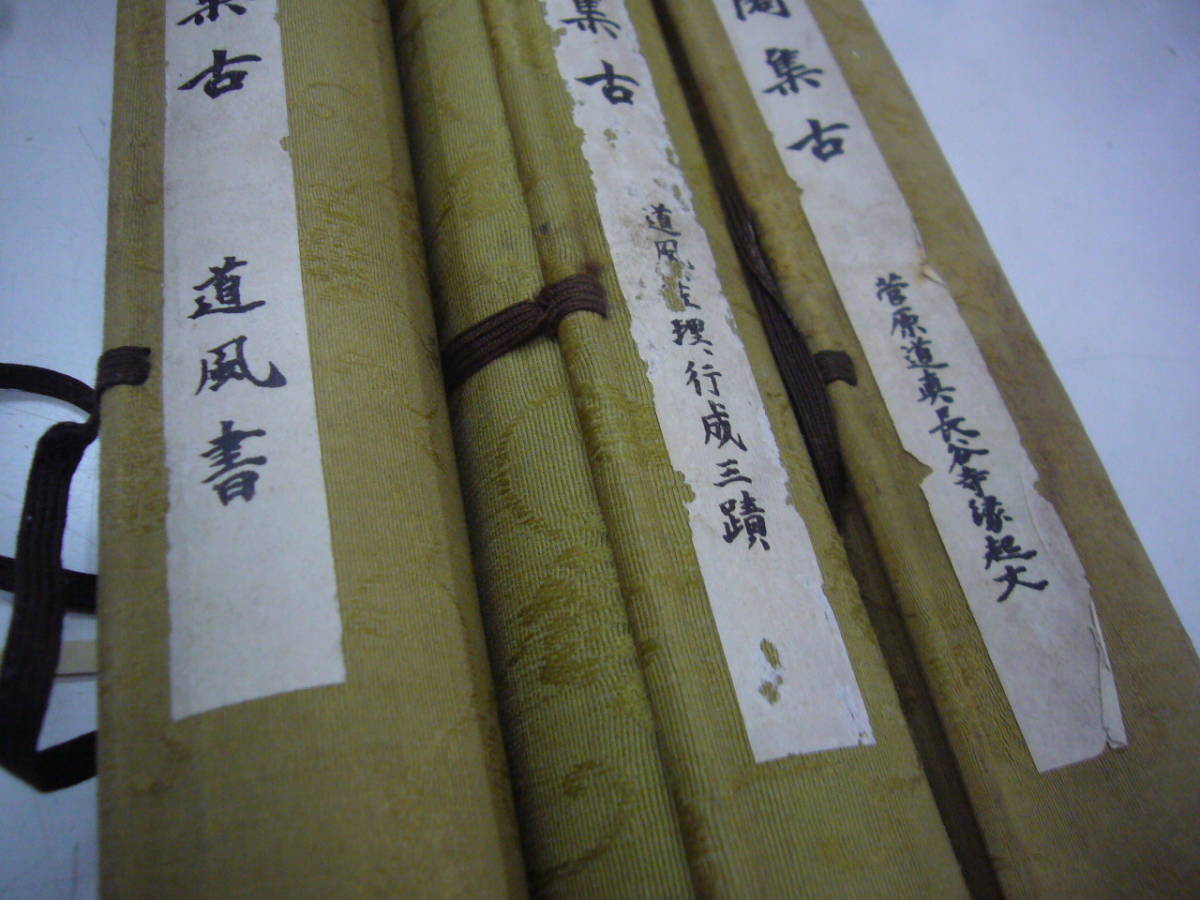 集古 道風書
集古 道風、佐理、行成三蹟
閣集古 菅原道真長谷寺縁起文